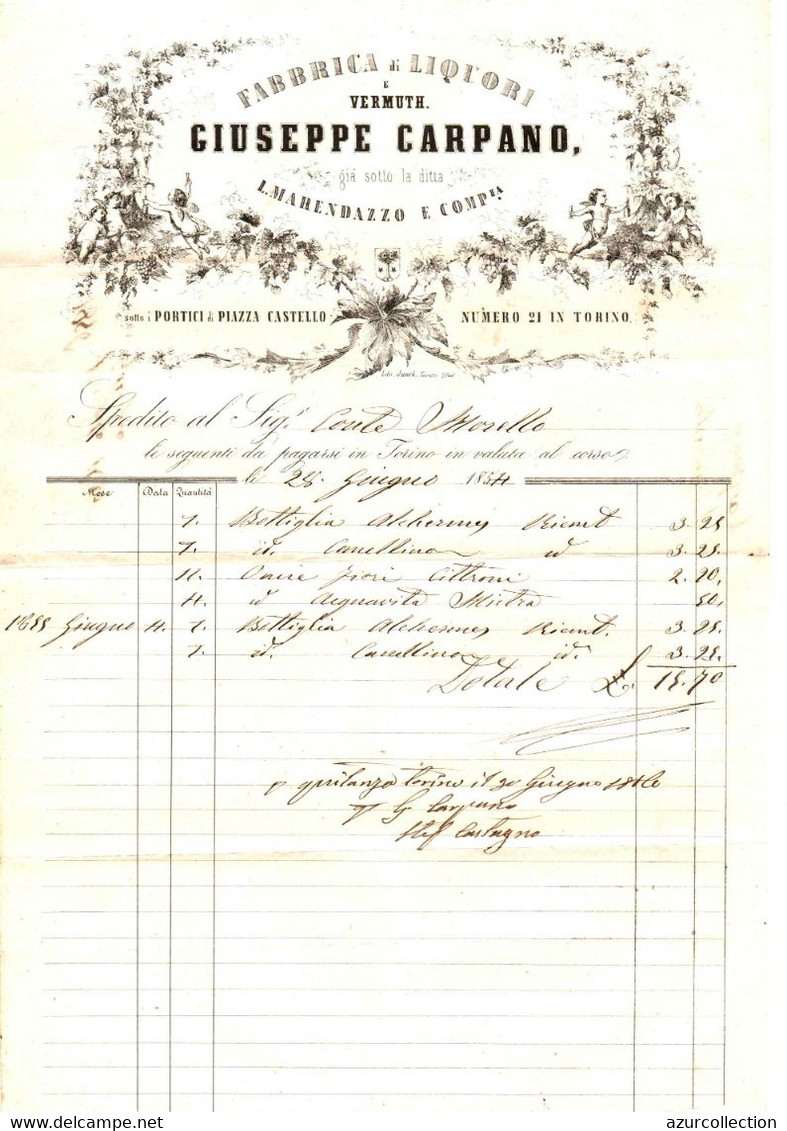 FABBRICA di LIQUORI
E
VERMUTH.
GIUSEPPE CARPANO,
già sotto la ditta
L. MARENDAZZO E COMPIA
sotto i PORTICI di PIAZZA CASTELLO
NUMERO 21 IN TORINO.
Lit. Junck, Torino
Spedito al Sigr. Conte Morello
le seguenti da pagarsi in Torino in valuta al corso
li 28. Giugno 1854
Mese Data Quantità
1. Bottiglia Alchermes 3. 25
1. id. Canellino id 3. 25.
11. Oncie fiori Cittroni 2. 20.
4. id Acquavita 50.
1855 Giugno 4. 1. Bottiglia Alchermes 3. 25.
1. id. Canellino id. 3. 25.
Totale £. 15.70
p quitanza Torino il 20 Giugno
p G Carpano
Castagno
azurcollection